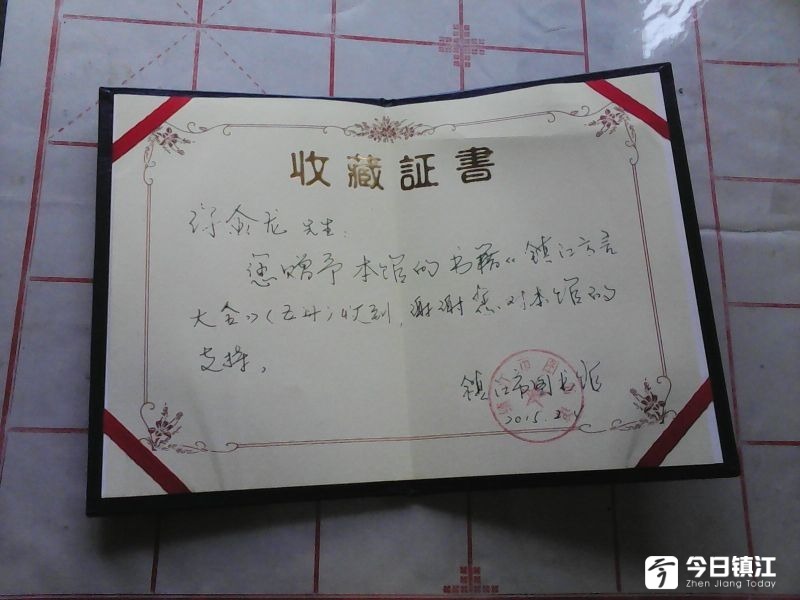 收藏証書
金龙 先生:
您赠予本馆的书籍《镇江方言
大全》(五册)收到,谢谢您对本馆的
支持。
镇江市图书馆
2015.2.4
今日镇江
Zhen Jiang Today